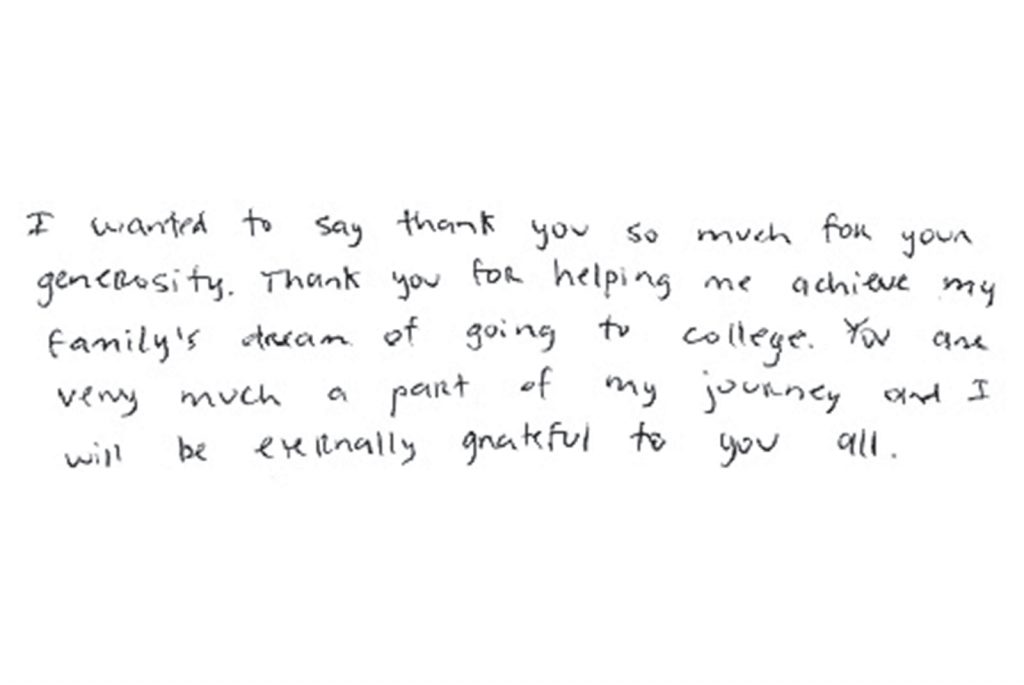 I wanted to say thank you so much for your
generosity. Thank you for helping me achieve my
family's dream of going to college. You are
very much a part of my journey and I
will be eternally grateful to you all.